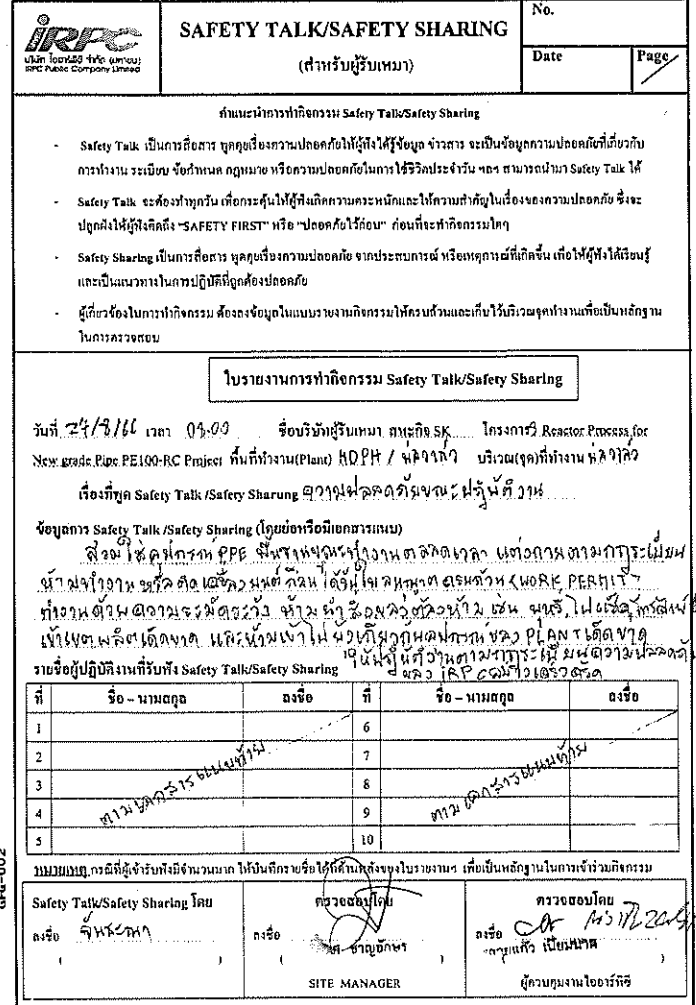 IRPC
บริษัท ไออาร์พีซี จำกัด (มหาชน)
IRPC Public Company Limited
SAFETY TALK/SAFETY SHARING
(สำหรับผู้รับเหมา)
No.
Date
Page
คำแนะนำการทำกิจกรรม Safety Talk/Safety Sharing
- Safety Talk เป็นการสื่อสาร พูดคุยเรื่องความปลอดภัยให้ผู้ฟังได้รู้ข้อมูล ข่าวสาร จะเป็นข้อมูลความปลอดภัยที่เกี่ยวกับ
การทำงาน ระเบียบ ข้อกำหนด กฎหมาย หรือความปลอดภัยในการใช้ชีวิตประจำวัน ฯลฯ สามารถนำมา Safety Talk ได้
- Safety Talk จะต้องทำทุกวัน เพื่อกระตุ้นให้ผู้ฟังเกิดความตระหนักและให้ความสำคัญในเรื่องของความปลอดภัย ซึ่งจะ
ปลูกฝังให้ผู้ฟังคิดถึง “SAFETY FIRST” หรือ “ปลอดภัยไว้ก่อน” ก่อนที่จะทำกิจกรรมใดๆ
- Safety Sharing เป็นการสื่อสาร พูดคุยเรื่องความปลอดภัย จากประสบการณ์ หรือเหตุการณ์ที่เกิดขึ้น เพื่อให้ผู้ฟังได้เรียนรู้
และเป็นแนวทางในการปฏิบัติที่ถูกต้องปลอดภัย
- ผู้เกี่ยวข้องในการทำกิจกรรม ต้องลงข้อมูลในแบบรายงานกิจกรรมให้ครบถ้วนและเก็บไว้บริเวณจุดทำงานเพื่อเป็นหลักฐาน
ในการตรวจสอบ
ใบรายงานการทำกิจกรรม Safety Talk/Safety Sharing
วันที่ 27/8/66 เวลา 08.00 ชื่อบริษัทผู้รับเหมา สหะกิจ SK โครงการ 3 Reactor Process for
New grade Pipe PE100-RC Project พื้นที่ทำงาน(Plant) HDPH / บริเวณ(จุด)ที่ทำงาน
เรื่องที่พูด Safety Talk /Safety Sharung ความปลอดภัยขณะปฏิบัติงาน
ข้อมูลการ Safety Talk /Safety Sharing (โดยย่อหรือมีเอกสารแนบ)
สวมใส่อุปกรณ์ PPE พื้นฐานขณะทำงานตลอดเวลา แต่งกายตามกฎระเบียบ
ห้ามทำงานหรือติดเครื่องยนต์ก่อนได้รับใบอนุญาตครบถ้วน (WORK PERMIT)
ทำงานด้วยความระมัดระวัง ห้ามนำสิ่งของต้องห้าม เช่น บุหรี่, ไฟแช็ค, โทรศัพท์
เข้าเขตผลิตเด็ดขาด และห้ามเข้าไปยุ่งเกี่ยวกับอุปกรณ์ของ PLANT เด็ดขาด
ให้ปฏิบัติงานตามกฎระเบียบความปลอดภัย
ของ IRPC อย่างเคร่งครัด
รายชื่อผู้ปฏิบัติงานที่รับฟัง Safety Talk/Safety Sharing
ที่ ชื่อ – นามสกุล ลงชื่อ ที่ ชื่อ – นามสกุล ลงชื่อ
1 6
2 7
3 8
4 9
5 10
ตามเอกสารแนบท้าย ตามเอกสารแนบท้าย
หมายเหตุ กรณีที่ผู้เข้ารับฟังมีจำนวนมาก ให้บันทึกรายชื่อได้ที่ด้านหลังของใบรายงานฯ เพื่อเป็นหลักฐานในการเข้าร่วมกิจกรรม
Safety Talk/Safety Sharing โดย ตรวจสอบโดย ตรวจสอบโดย
ลงชื่อ ลงชื่อ ลงชื่อ
ชาญอักษร
SITE MANAGER ผู้ควบคุมงานไออาร์พีซี